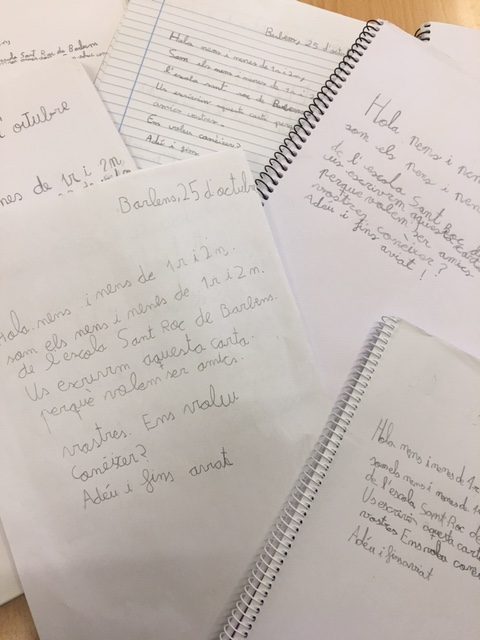 Sant Roc de Barlens
octubre
nes de 1r i 2n
Barlens, 25 d'octu
Hola nens i nenes de 1r i 2n,
Som els nens i nenes de 1r i
l'escola Sant Roc de Barlens
Us escrivim aquesta carta per
amics vostres.
Ens voleu conèixer?
Adéu i fins
Hola nens i nen
som els nens i nen
d l'escola Sant Roc
us escrivim aquesta carta
perque volem ser amics
vostres conèixer?
Adéu i fins
aviat!
Barlens, 25 d'octubr
Hola nens i nens de 1r i 2n.
som els nens i nenes de 1r i 2n.
de l'escola Sant Roc de Barlens.
Us escrivim aquesta carta.
perquè volem ser amics.
vostres. Ens voleu
Conèixer?
Adéu i fins aviat
Hola nens i nenes de 1r
som els nens i nenes de 1
de l'escola Sant Roc de
Us escrivim aquesta cart
vostres Ens voleu conè
Adéu i fins aviat